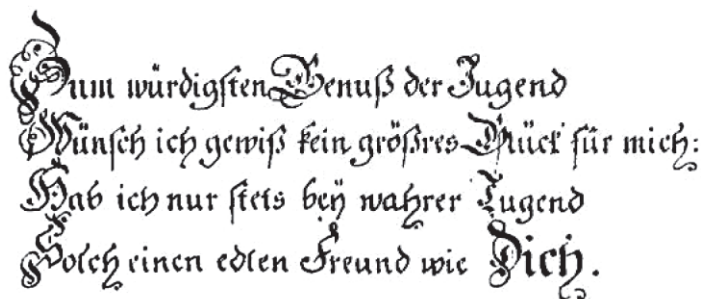 Zum würdigsten Genuß der Jugend
Wünsch ich gewiß kein größres Glück für mich:
Hab ich nur stets bey wahrer Tugend
Solch einen edlen Freund wie Dich.